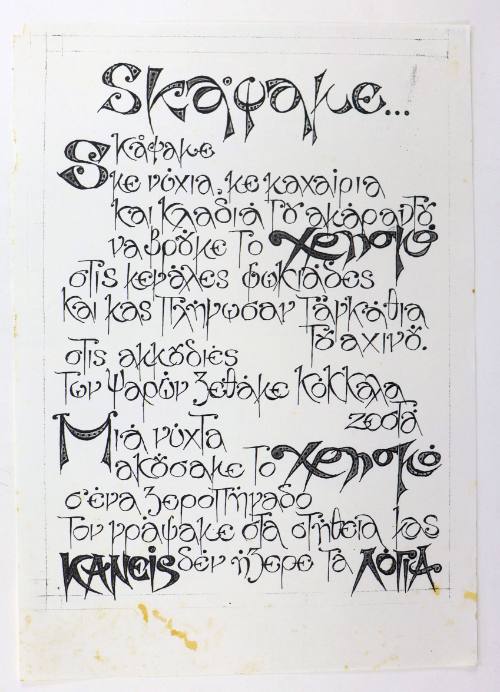 Σκάψαμε...
Σκάψαμε
με νύχια, με μαχαίρια
και κλαδιά του αμάραντου
να βρούμε το χρησμό
στις μεγάλες φωκιάδες
και μας πλήγωσαν τ' αγκάθια
του αχινού.
στις αμμουδιές
των ψαρών κόκκαλα
ζεστά
Μιά νύχτα
ακούσαμε το χρησμό
σ' ένα ξεροπήγαδο
τον γράψαμε στα στήθεια μας
ΚΑΝΕΙΣ δέν ήξερε τα ΛΟΓΙΑ